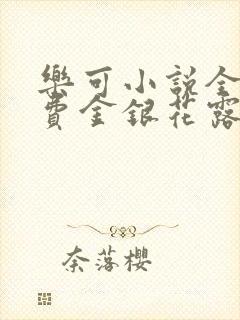 樂可小說全
費金銀花露
奈落櫻